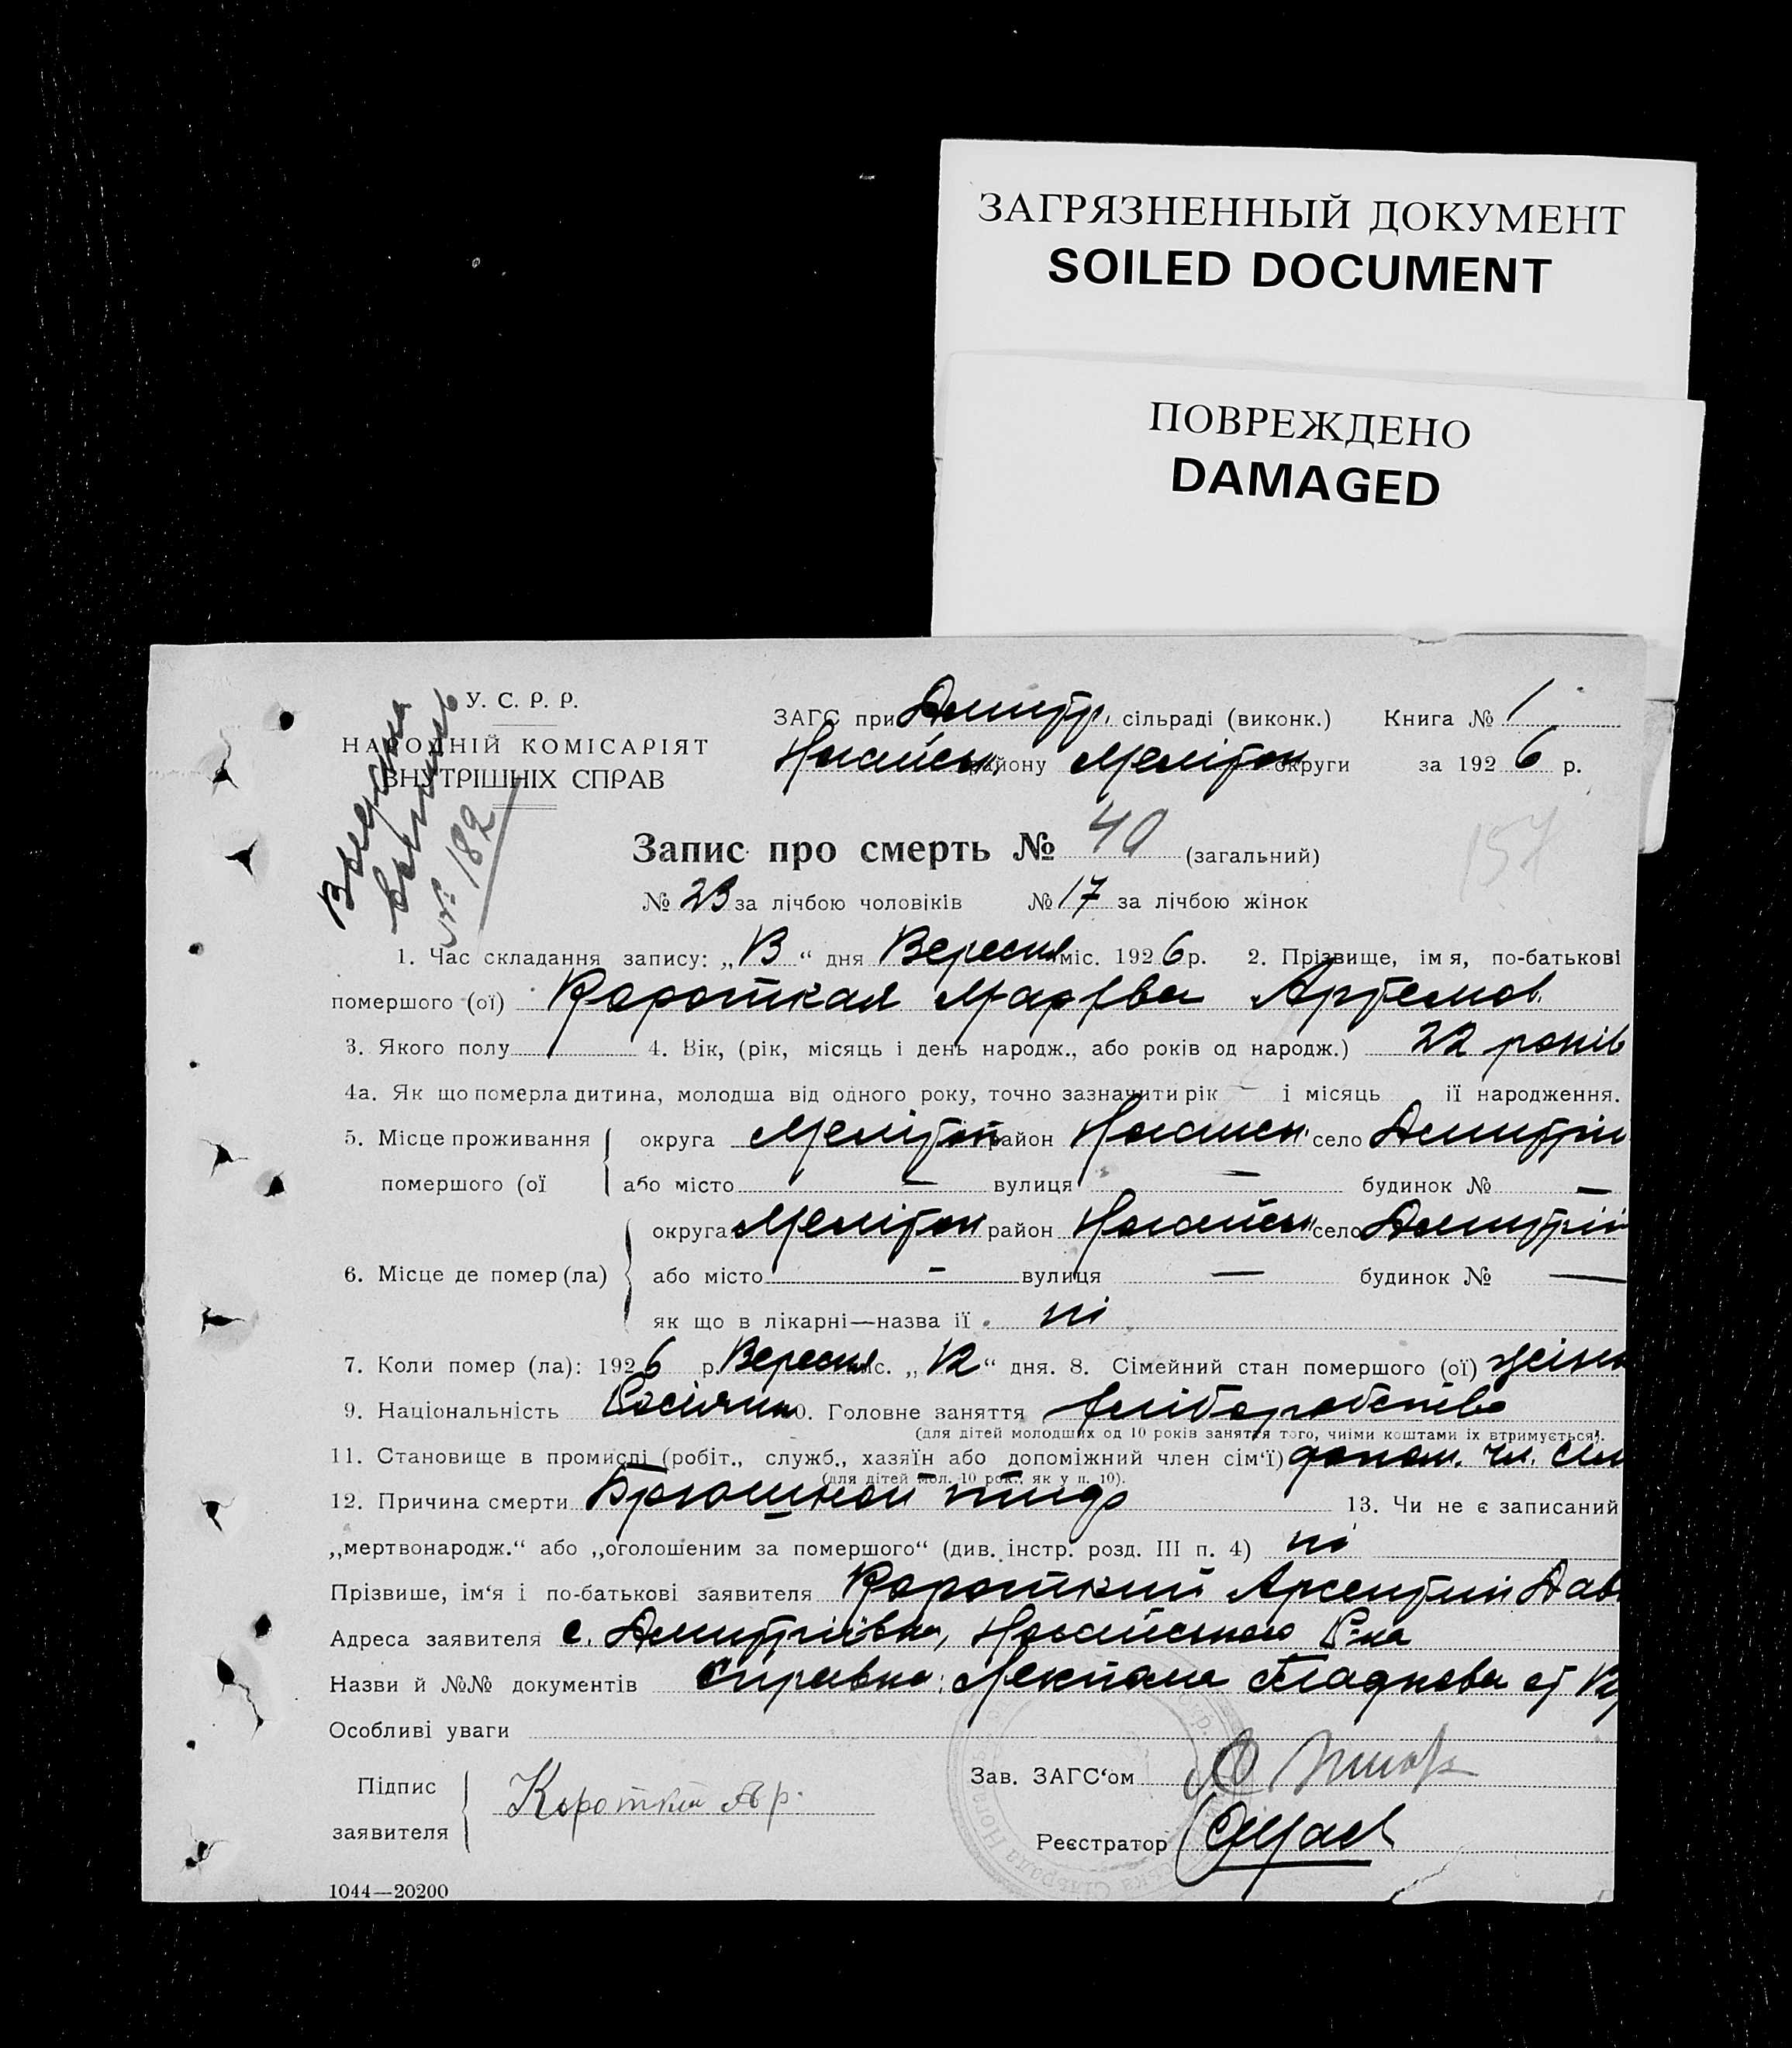 ЗАГРЯЗНЕННЫЙ ДОКУМЕНТ
SOILED DOCUMENT
ПОВРЕЖДЕНО
DAMAGED
У. С. Р. Р.
НАРОДНІЙ КОМІСАРІЯТ
ВНУТРІШНІХ СПРАВ
№ 182
ЗАГС при Дмитр. сільраді (виконк.) Книга № 1
Ногайськ району Мелітоп округи за 1926 р.
Запис про смерть № 40 (загальний)
157
№ 23 за лічбою чоловіків № 17 за лічбою жінок
1. Час складання запису: „13“ дня Вересня міс. 1926 р. 2. Прізвище, імя, по-батькові
помершого (ої) Короткая Марфва Артемов.
3. Якого полу 4. Вік, (рік, місяць і день народж., або років од народж.) 22 років
4а. Як що померла дитина, молодша від одного року, точно зазначити рік — і місяць її народження.
5. Місце проживання округа Мелітоп район Ногайськ село Дмитрів
помершого (ої або місто — вулиця — будинок № —
округа Мелітоп район Ногайськ село Дмитрів
6. Місце де помер (ла) або місто — вулиця — будинок № —
як що в лікарні—назва її ні
7. Коли помер (ла): 1926 р. Вересня міс. „12“ дня. 8. Сімейний стан помершого (ої)
9. Національність 10. Головне заняття хліборобство
(для дітей молодших од 10 років заняття того, чиїми коштами їх втримується).
11. Становище в промислі (робіт., служб., хазяїн або допоміжний член сім‘ї) допом. чл. сім
(для дітей мол. 10 рок., як у п. 10).
12. Причина смерти Брюшной тиф 13. Чи не є записаний
„мертвонародж.“ або „оголошеним за помершого“ (див. інстр. розд. III п. 4) ні
Прізвище, ім‘я і по-батькові заявителя Короткий Арсентий Дав
Адреса заявителя с. Дмитріївка, Ногайського Р-на
Назви й №№ документів справка Лекпома
Особливі уваги
Підпис
заявителя Короткий Ар.
Зав. ЗАГС‘ом
Реєстратор
1044—20200